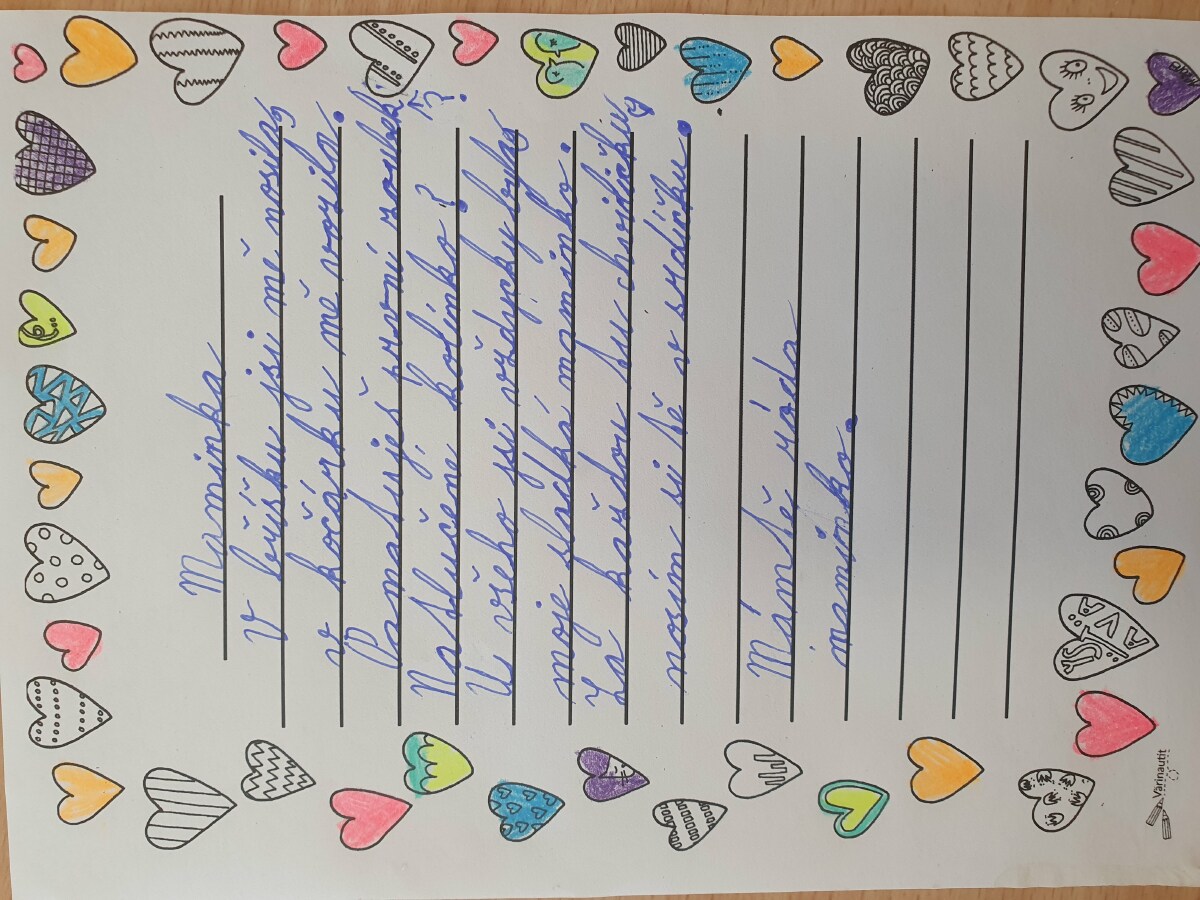 Maminka
V bříšku jsi mě nosila,
v kočárku mě vozila.
Pamatuješ první zoubek?
Natlučený kolínko?
U všeho jsi vždycky byla,
moje sladká maminko.
Za každou tu chviličku,
nosím si tě v srdíčku.
Mám tě ráda
maminko.
AVA
Värinautit